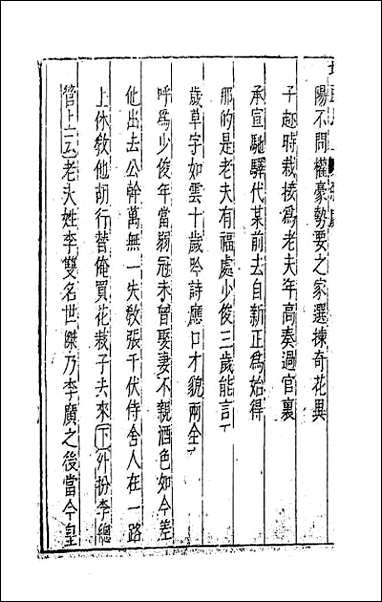 陽不問權豪勢要之家選揀奇花異
子趂時栽接爲老夫年高奏過官裏
承宣馳驛代某前去自新正爲始得
那的是老夫有福處少俊三歲能言
歲草字如雲十歲吟詩應口才貌兩全
呼爲少俊年當弱冠未曾娶妻不親酒色如今差
他出去公幹萬無一失敎張千伏侍舍人在一路
上休敎他胡行替俺買花栽子去來下外扮李總
管上云老夫姓李雙名世傑乃李廣之後當今皇